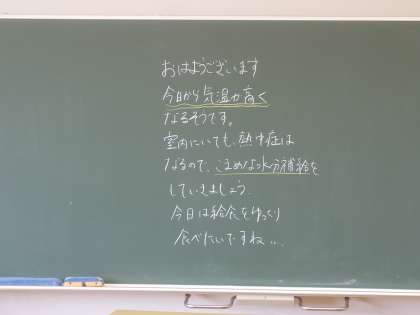 おはようございます
今日から気温が高く
なるそうです。
室内にいても、熱中症は
なるので、こまめな水分補給を
していきましょう。
今日は給食をゆっくり
食べたいですね...